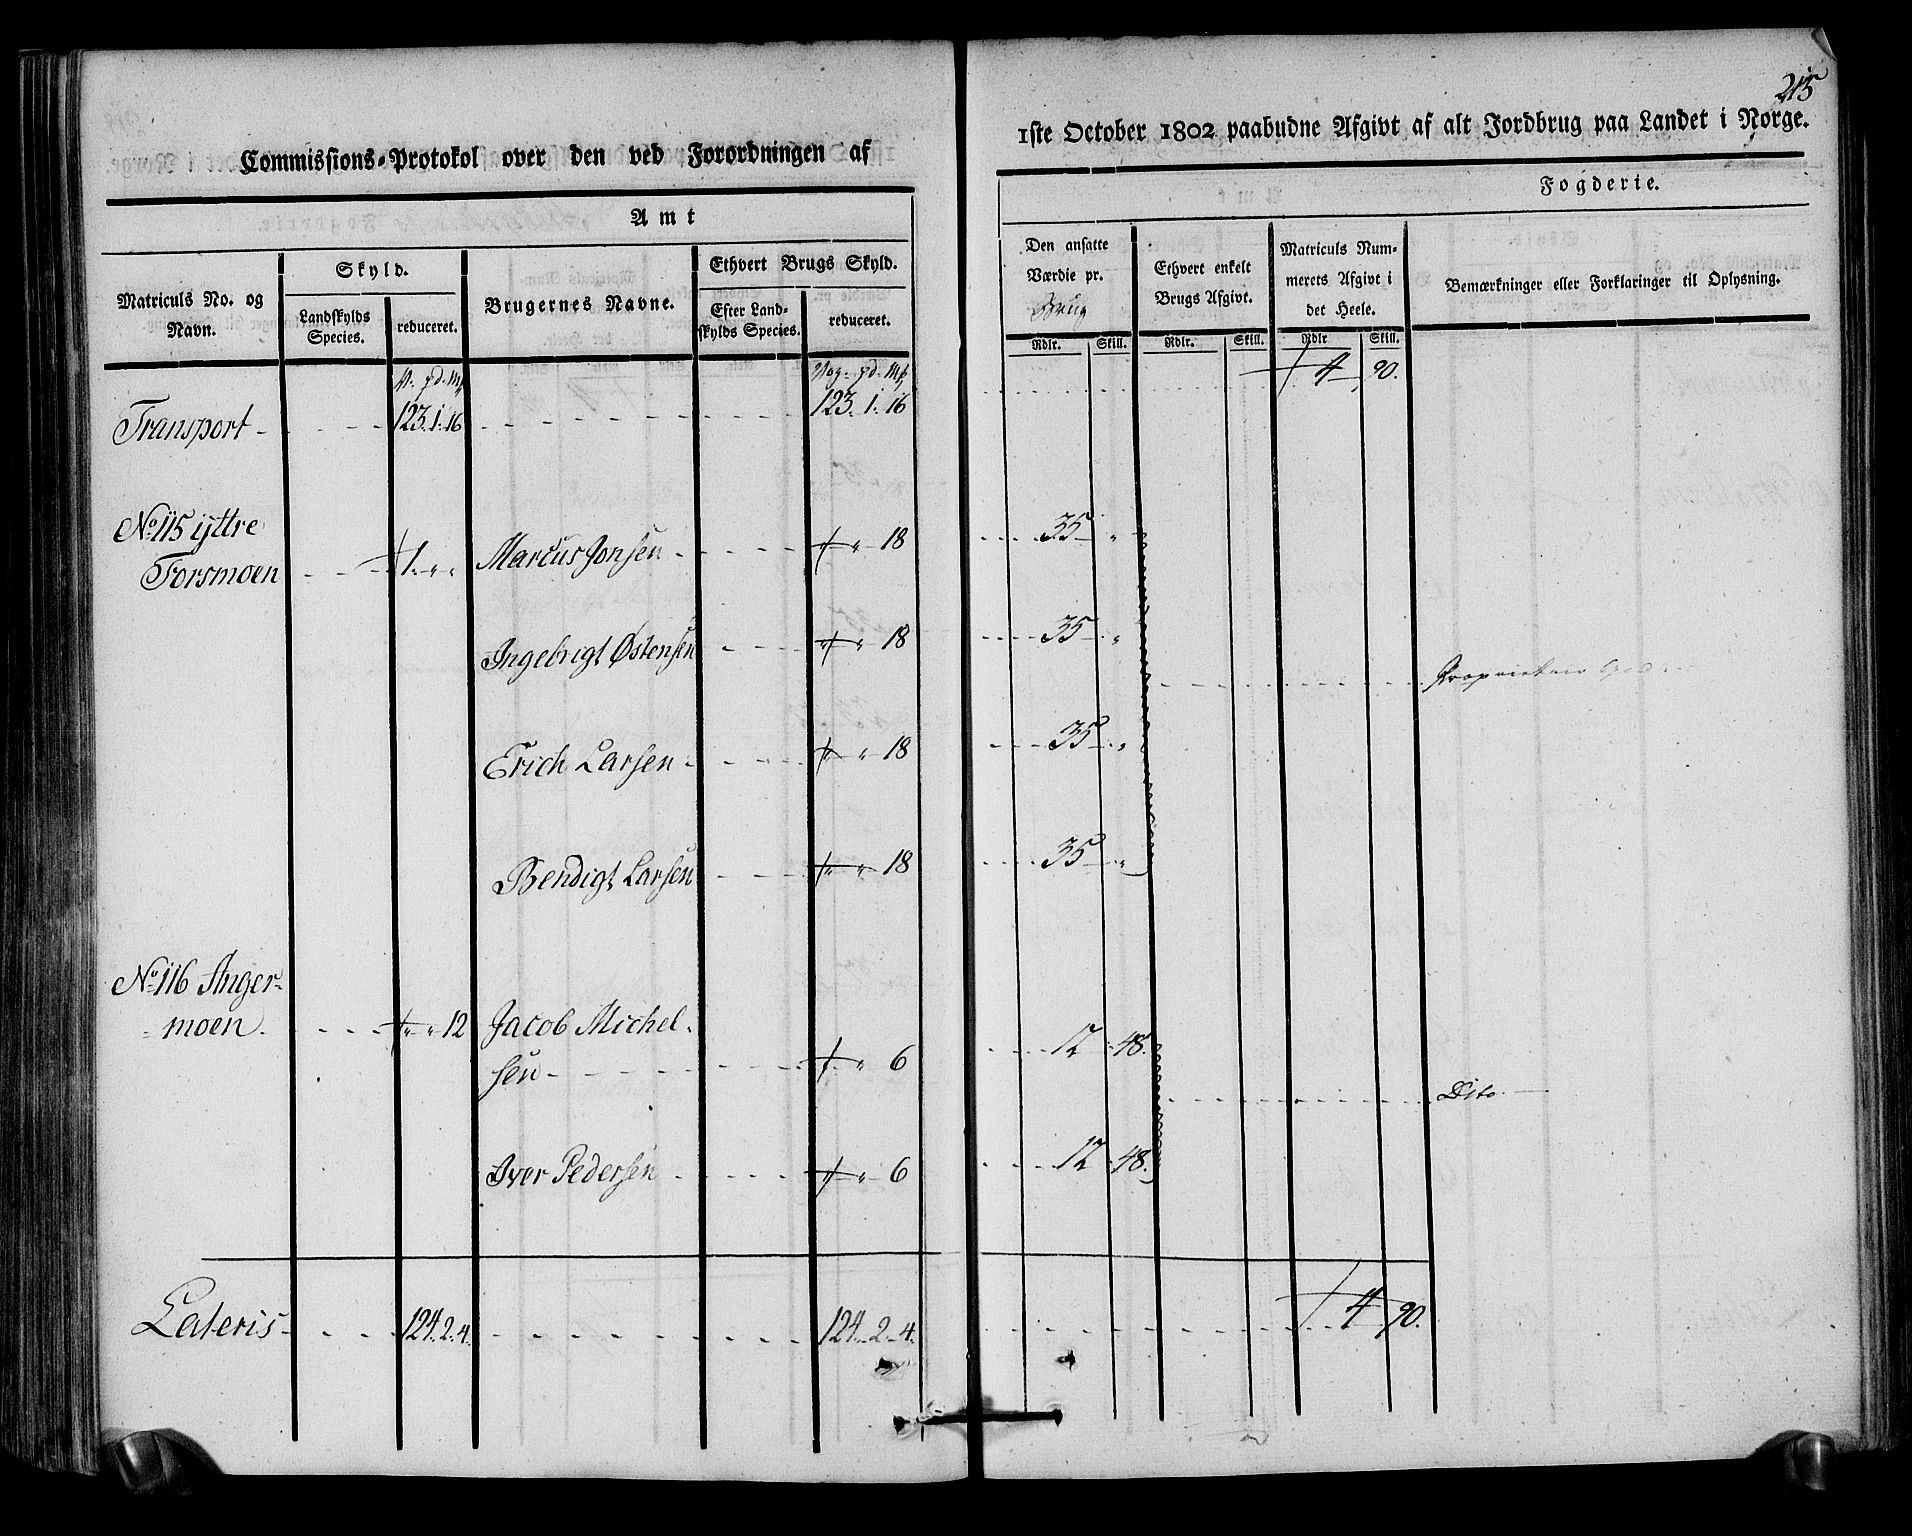 215
Commissions-Protokol over den ved Forordningen af
1ste October 1802 paabudne Afgivt af alt Jordbrug paa Landet i Norge.
Amt
Fogderie.
Matriculs No. og Navn.
Skyld.
Landskylds Species.
reduceret.
Brugernes Navne.
Ethvert Brugs Skyld.
Efter Landskylds Species.
reduceret.
Den ansatte Værdie pr. Brug
Rdlr. Skill.
Ethvert enkelt Brugs Afgivt.
Rdlr. Skill.
Matriculs Nummerets Afgivt i det Heele.
Rdlr Skill.
Bemærkninger eller Forklaringer til Oplysning.
Vog. pd. Mk
Transport - 123. 1. 16 - 123. 1. 16 - 4 90.
No 115 yttre
Forsmoen - 1. " " Marcus Jonsen - " " 18 - 35 "
Ingebrigt Østensen - " " 18 - 35 "
Proprietair
Erich Larsen - " " 18 - 35 "
Bendigt Larsen - " " 18 - 35 "
No 116 Anger-
moen - " " 12 Jacob Michel-
sen - " " 6 - 12 48.
Dito
Iver Pedersen - " " 6 - 12 48.
Lateris - 124. 2. 4. - 124. 2. 4. - 4 90.